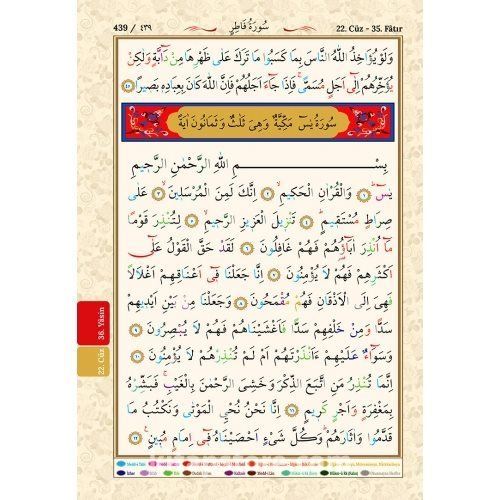 439 / ٤٣٩
سُورَةُ فَاطِرٍ
22. Cüz - 35. Fâtır
وَلَوْ يُؤَاخِذُ اللّٰهُ النَّاسَ بِمَا كَسَبُوا مَا تَرَكَ عَلٰى ظَهْرِهَا مِنْ دَٓابَّةٍ وَلٰكِنْ
يُؤَخِّرُهُمْ اِلٰٓى اَجَلٍ مُسَمًّىۚ فَاِذَا جَٓاءَ اَجَلُهُمْ فَاِنَّ اللّٰهَ كَانَ بِعِبَادِه۪ بَص۪يرًا ﴿٤٥﴾
سُورَةُ يٰسٓ مَكِّيَّةٌ وَهِيَ ثَلٰثٌ وَثَمَانُونَ اٰيَةً
بِسْمِ اللّٰهِ الرَّحْمٰنِ الرَّح۪يمِ
يٰسٓۜ ﴿١﴾ وَالْقُرْاٰنِ الْحَك۪يمِۙ ﴿٢﴾ اِنَّكَ لَمِنَ الْمُرْسَل۪ينَۙ ﴿٣﴾ عَلٰى
صِرَاطٍ مُسْتَق۪يمٍۜ ﴿٤﴾ تَنْز۪يلَ الْعَز۪يزِ الرَّح۪يمِۙ ﴿٥﴾ لِتُنْذِرَ قَوْمًا
مَٓا اُنْذِرَ اٰبَٓاؤُ۬هُمْ فَهُمْ غَافِلُونَ ﴿٦﴾ لَقَدْ حَقَّ الْقَوْلُ عَلٰٓى
اَكْثَرِهِمْ فَهُمْ لَا يُؤْمِنُونَ ﴿٧﴾ اِنَّا جَعَلْنَا ف۪ٓي اَعْنَاقِهِمْ اَغْلَالًا
فَهِيَ اِلَى الْاَذْقَانِ فَهُمْ مُقْمَحُونَ ﴿٨﴾ وَجَعَلْنَا مِنْ بَيْنِ اَيْد۪يهِمْ
سَدًّا وَمِنْ خَلْفِهِمْ سَدًّا فَاَغْشَيْنَاهُمْ فَهُمْ لَا يُبْصِرُونَ ﴿٩﴾
وَسَوَٓاءٌ عَلَيْهِمْ ءَاَنْذَرْتَهُمْ اَمْ لَمْ تُنْذِرْهُمْ لَا يُؤْمِنُونَ ﴿١٠﴾
اِنَّمَا تُنْذِرُ مَنِ اتَّبَعَ الذِّكْرَ وَخَشِيَ الرَّحْمٰنَ بِالْغَيْبِۚ فَبَشِّرْهُ
بِمَغْفِرَةٍ وَاَجْرٍ كَر۪يمٍ ﴿١١﴾ اِنَّا نَحْنُ نُحْيِ الْمَوْتٰى وَنَكْتُبُ مَا
قَدَّمُوا وَاٰثَارَهُمْۜ وَكُلَّ شَيْءٍ اَحْصَيْنَاهُ ف۪ٓي اِمَامٍ مُب۪ينٍ۟ ﴿١٢﴾
36. Yâsîn
22. Cüz